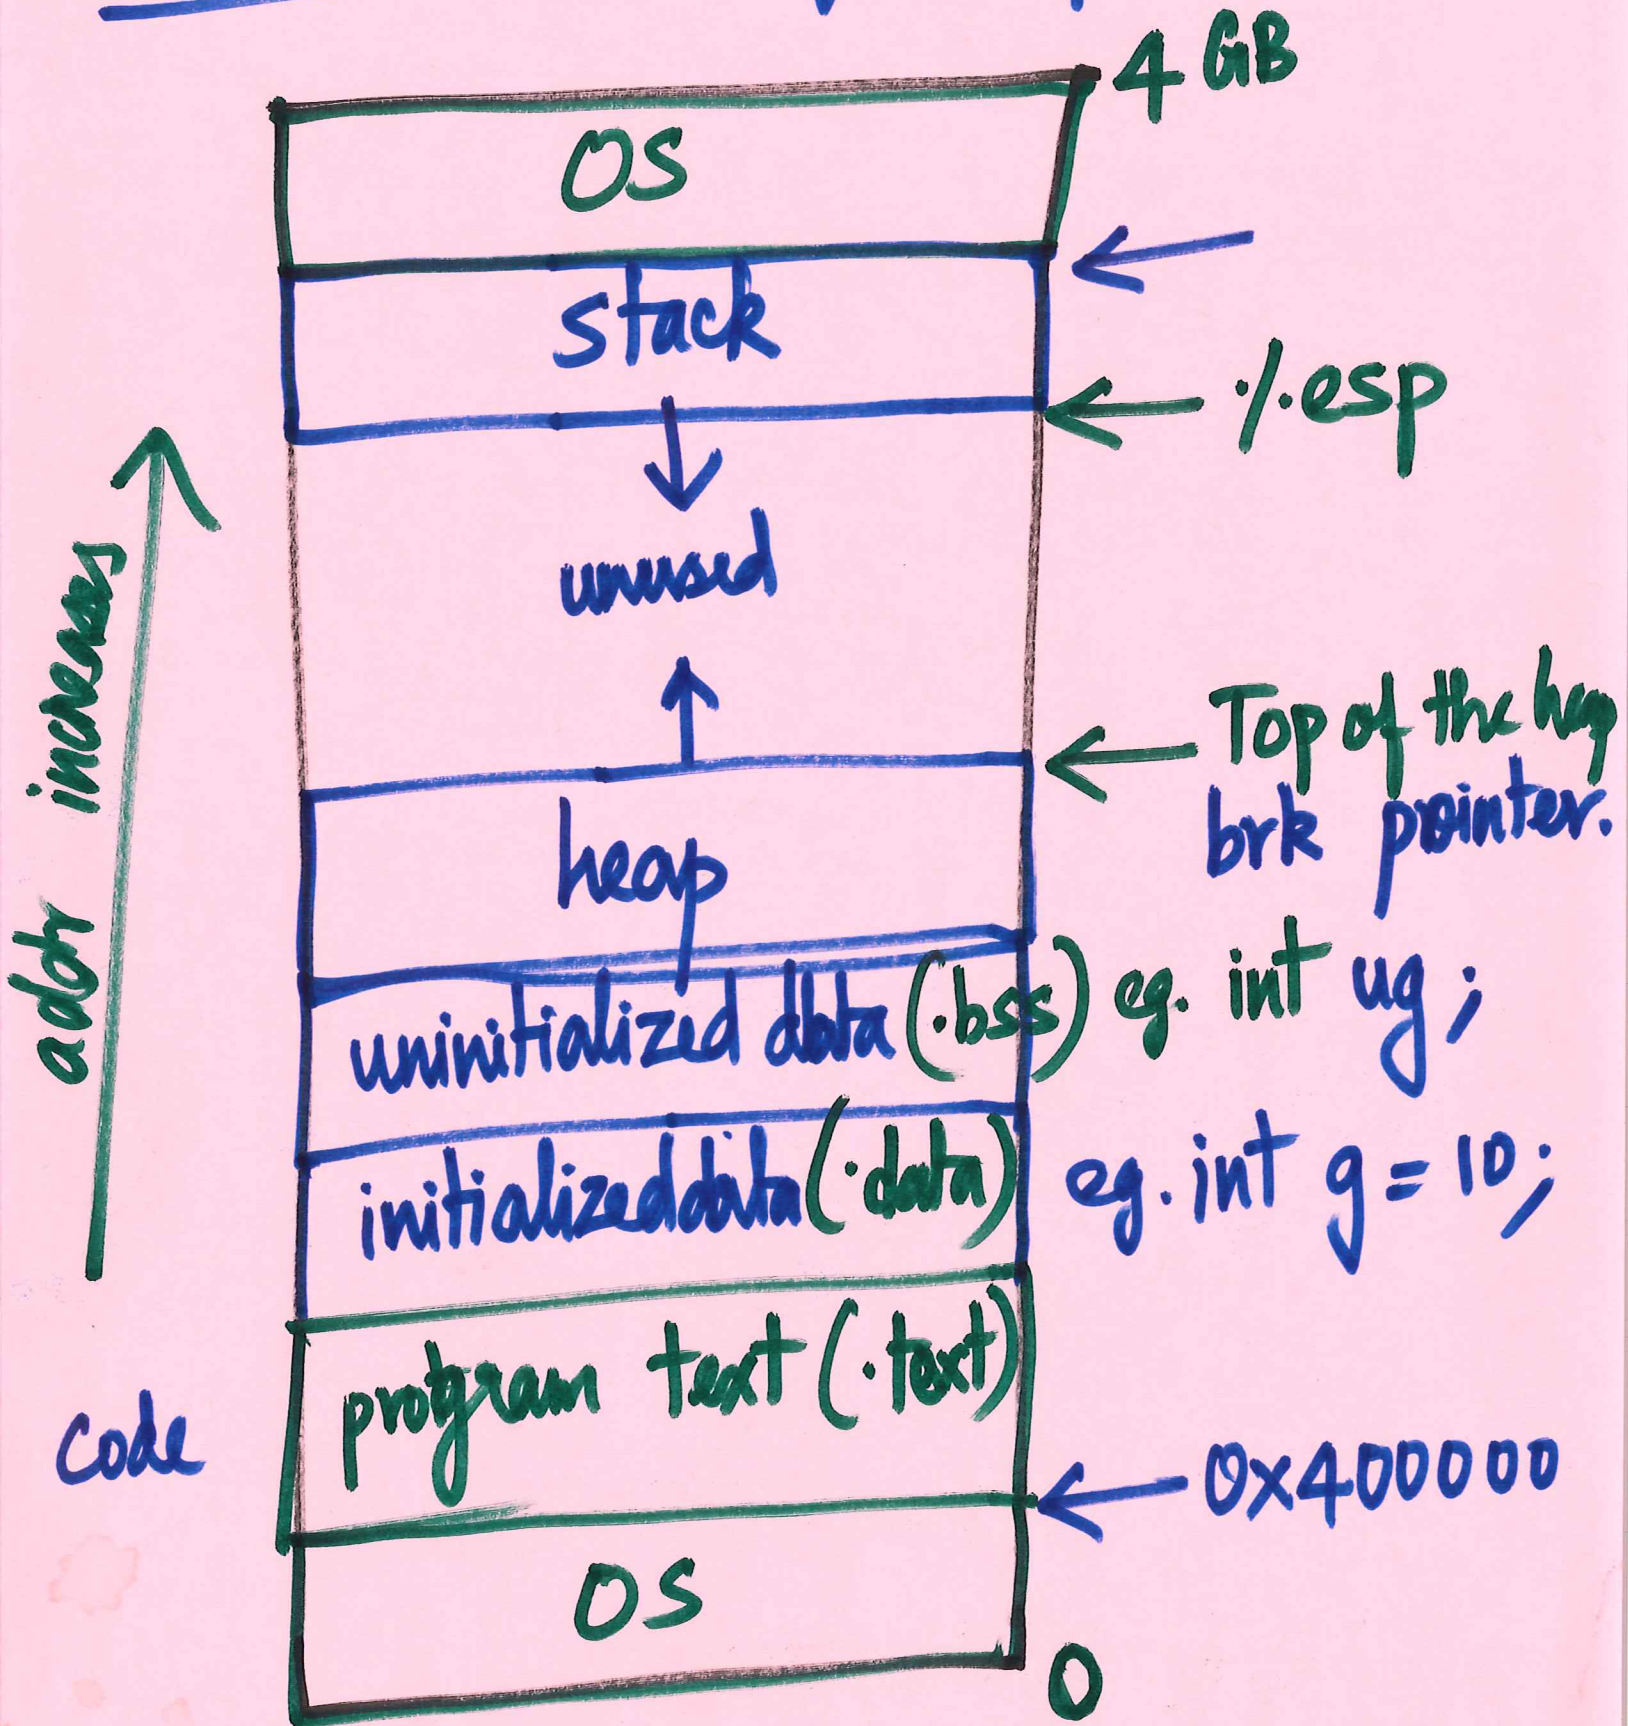 4 GB
OS
stack
%esp
unused
addr increases
Top of the heap
brk pointer.
heap
uninitialized data (.bss) eg. int ug;
initialized data (.data) eg. int g = 10;
program text (.text)
Code
0x400000
OS
0